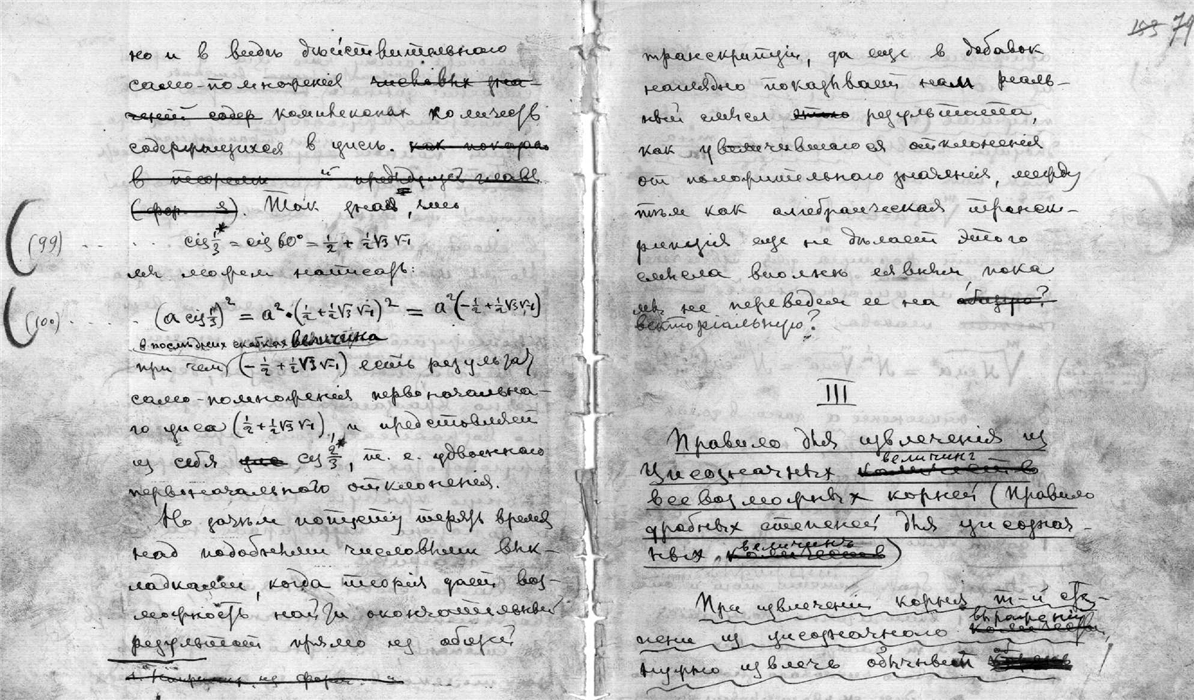 но и в виде действительного
само-помножения ~~числовых зна-~~
~~чений содер~~ комплексных количеств
содержащихся в цисе. ~~как показа~~
~~в теореме " предыдущей главе~~
~~(фор. я)~~. Так зная, что
(99) . . . . . cis 1/3* = cis 60° = 1/2 + 1/2 √3 √-1
мы можем написать:
(100) . . . . . (a cis 1/3*)² = a² • (1/2 + 1/2 √3 √-1)² = a² (-1/2 + 1/2 √3 √-1)
в последних скобках величина
при чем (-1/2 + 1/2 √3 √-1) есть результат
само-помножения первоначально-
го циса (1/2 + 1/2 √3 √-1), и представляет
из себя ~~цис~~ cis 2/3*, т. е. удвоенного
первоначального отклонения.
Но зачем попусту терять время
над подобными числовыми вык-
ладками, когда теория дает воз-
можность найти окончательный
результат прямо из общей
183 79
транскрипции, да еще в добавок
наглядно показывает нам реаль-
ный смысл ~~этого~~ результата,
как увеличившагося отклонения
от положительного значения, между
тем как алгебраическая транск-
рипция еще не делает этого
смысла вполне явным, пока
мы не переведем ее на ~~общую?~~
векториальную?
III
Правило для извлечения из
Цисозначных ~~количество~~ величинг
всевозможных корней (Правило
дробных степеней для цисознач-
ных ~~количеств~~ величинъ)
При извлечении корня m-й сте-
пени из цисозначного ~~количества~~ выражения
нужно извлечь обычный